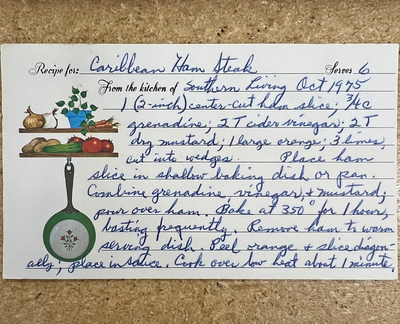 Recipe for: Caribbean Ham Steak Serves 6
From the kitchen of Southern Living Oct 1975
1 (2-inch) center-cut ham slice; 3/4 c
grenadine; 2 T cider vinegar; 2 T
dry mustard; 1 large orange; 3 limes,
cut into wedges. Place ham
slice in shallow baking dish or pan.
Combine grenadine, vinegar, & mustard;
pour over ham. Bake at 350° for 1 hour,
basting frequently. Remove ham to warm
serving dish. Peel orange & slice diagon-
ally; place in sauce. Cook over low heat about 1 minute.